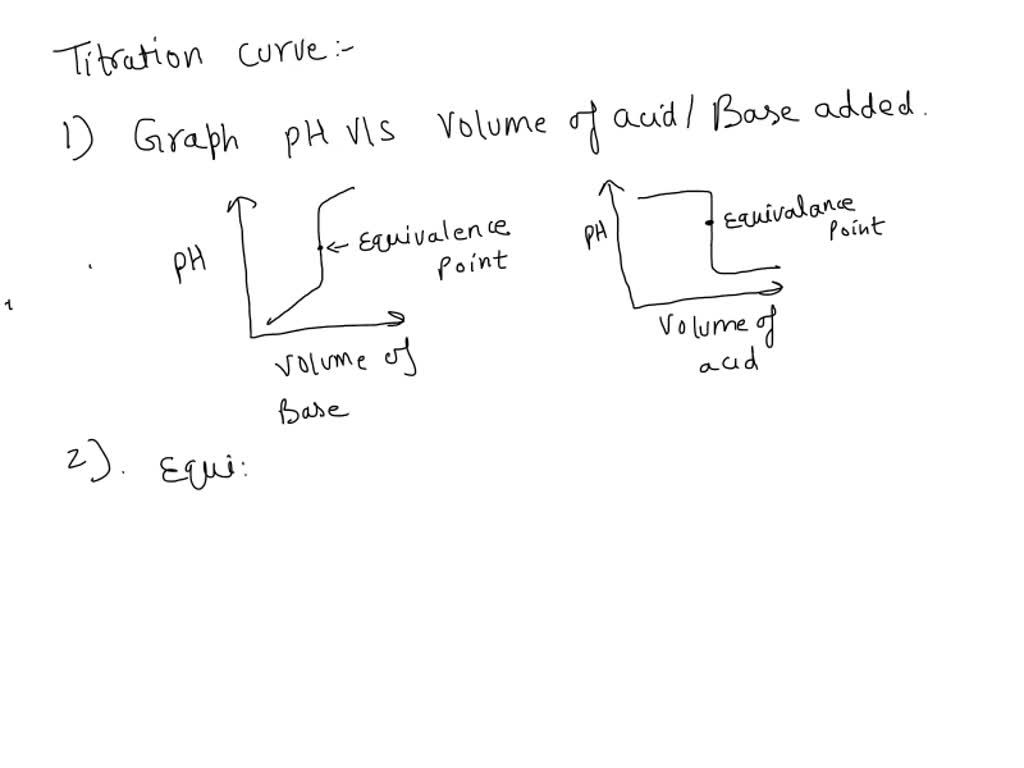 Titration curve:-
1) Graph pH V/s Volume of acid/Base added.
pH
Equivalence
Point
Volume of
Base
pH
Equivalance
Point
Volume of
acid
2). Equi: